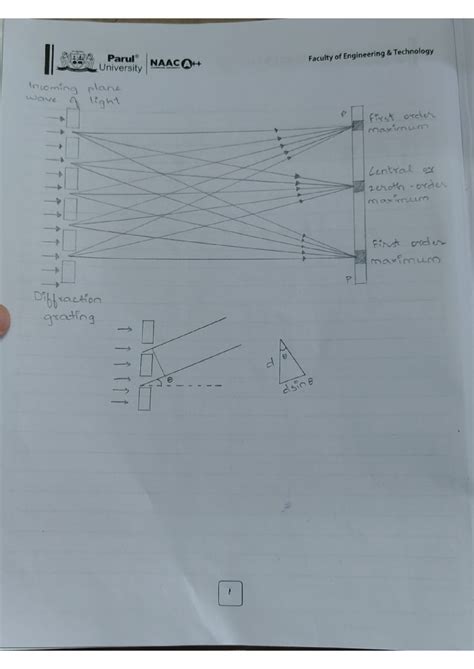 Parul®
University
NAAC A++
Faculty of Engineering & Technology
Incoming plane
wave A light
P
First order
maximum
Central or
zeroth-order
maximum
First order
maximum
P
Diffraction
grating
θ
d
θ
d sinθ
1